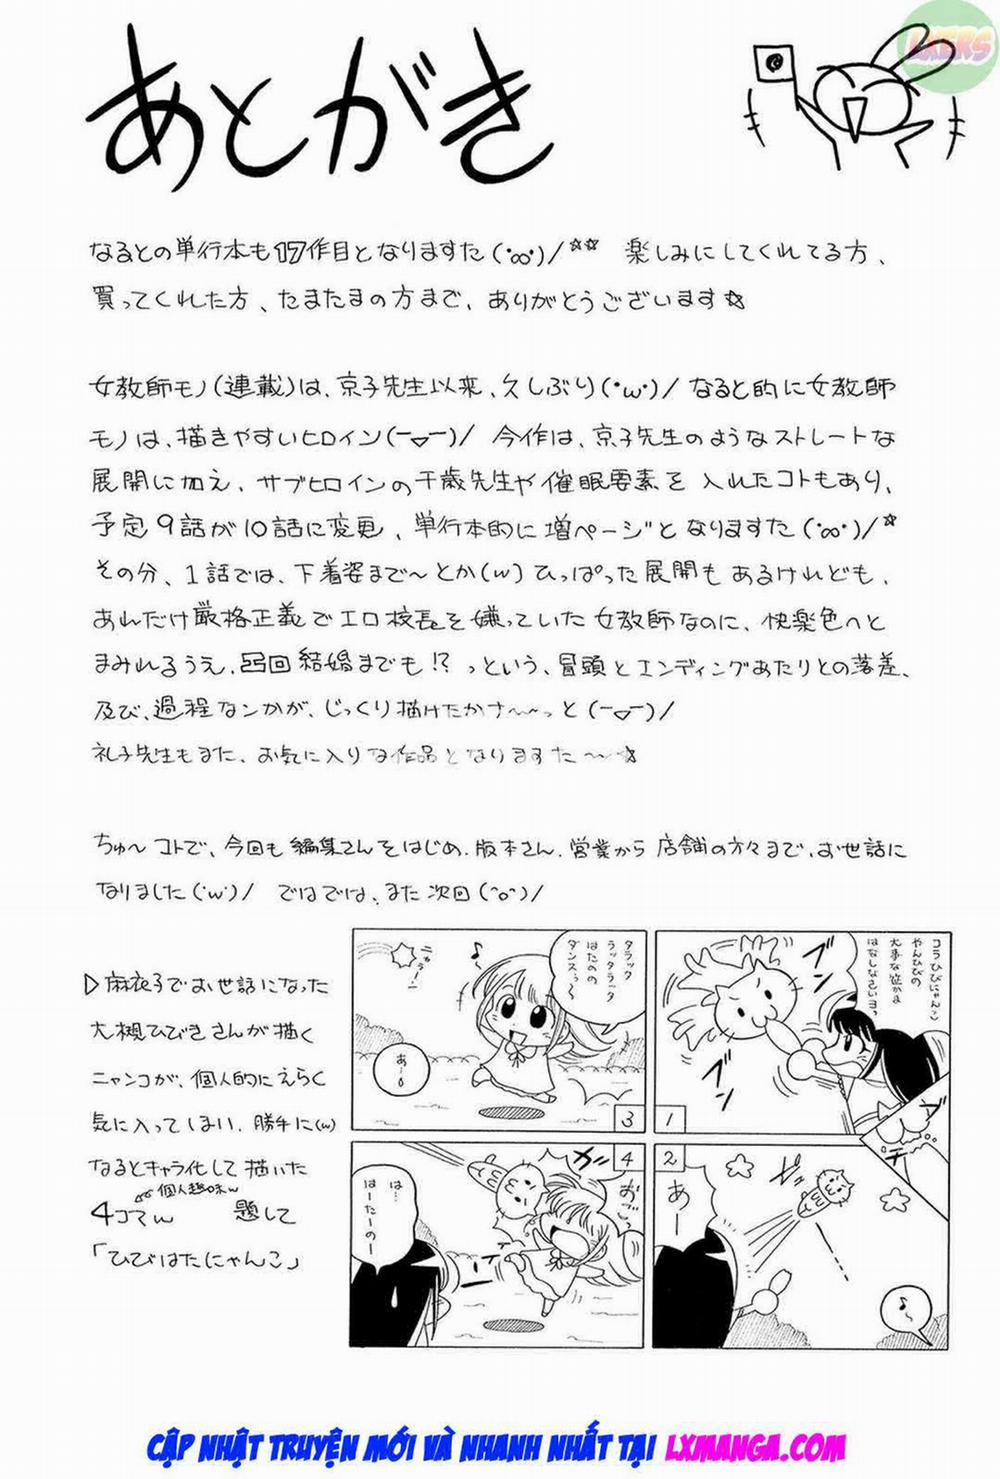 あとがき
なるとの単行本も17作目となりますた(・∞・)/☆☆ 楽しみにしてくれてる方、
買ってくれた方、たまたまの方まで、ありがとうございます☆
女教師モノ(連載)は、京子先生以来、久しぶり(・ω・)/ なると的に女教師
モノは、描きやすいヒロイン(ー▽ー)/ 今作は、京子先生のようなストレートな
展開に加え、サブヒロインの千歳先生や催眠要素を入れたコトもあり、
予定9話が10話に変更、単行本的に増ページとなりますた(・∞・)/☆
その分、1話では、下着姿まで〜とか(w)ひっぱった展開もあるけれども、
あれだけ厳格正義でエロ校長を嫌っていた女教師なのに、快楽色へと
まみれるうえ、凸凹結婚までも!? っという、冒頭とエンディングあたりとの落差、
及び、過程なンかが、じっくり描けたかナ〜〜っと(ー▽ー)/
礼子先生もまた、お気に入りな作品となりますた〜☆
ちゅ〜コトで、今回も編集さんをはじめ、版本さん、営業から店舗の方々まで、お世話に
なりました(・ω・)/ ではでは、また次回(^o^)/
▷麻衣子でお世話になった
大槻ひびきさんが描く
ニャンコが、個人的にえらく
気に入ってしまい、勝手に(w)
なるとキャラ化して描いた
個人趣味w
4コマw 題して
「ひびはたにゃんこ」
コラひびにゃんこ
やんひびの
大事な泣かま
はなしなさいヨっ
ブン
ブン
1
2
あー
♪
タラッタ
ラッタラータ
はたのの
ダンスっ〜
♪
ニャラー!
あーっ
3
4
ガッ
おごっ
は…
はーたーのー
CẬP NHẬT TRUYỆN MỚI VÀ NHANH NHẤT TẠI LXMANGA.COM
LXERS